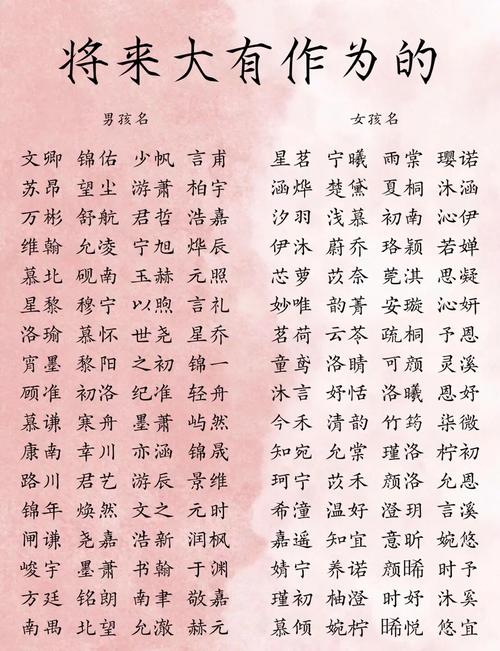 将来大有作为的
男孩名 女孩名
文卿 锦佑 少帆 言甫 星茗 宁曦 雨棠 璎诺
苏昂 望尘 游萧 柏宇 涵烨 楚黛 夏桐 沐涵
万彬 舒航 君哲 浩嘉 汐羽 浅慕 初南 沁伊
维翰 允凌 宁旭 烨辰 伊沐 蔚乔 珞颖 若婵
慕北 砚南 玉赫 元照 芯萝 苡奈 莞淇 思凝
星黎 穆宁 以煦 言礼 妙唯 韵菁 安璇 沁妍
洛瑜 慕怀 世尧 星乔 茗荷 云苓 疏桐 予恩
宵墨 黎阳 之初 锦一 童鸢 洛晴 可颜 灵溪
顾准 初洛 纪准 轻舟 沐言 妤恬 洛曦 恩妤
慕谦 寒舟 墨萧 屿然 今禾 清韵 竹筠 柒微
康南 幸川 亦涵 锦晟 知宛 允棠 瑾洛 柠初
路川 君艺 游辰 景维 珂宁 苡禾 颜洛 允恩
锦年 焕然 文之 元时 希潼 温好 澄玥 言溪
闻谦 尧嘉 浩新 润枫 嘉遥 知宜 意昕 婉悠
峻宇 墨萧 书翰 于渊 婧宁 养诺 颜晞 时予
方廷 铭朗 南聿 敬嘉 瑾初 柚澄 时妤 沐奚
南禺 北望 允澈 赫元 慕倾 婉柠 晞悦 悠宜